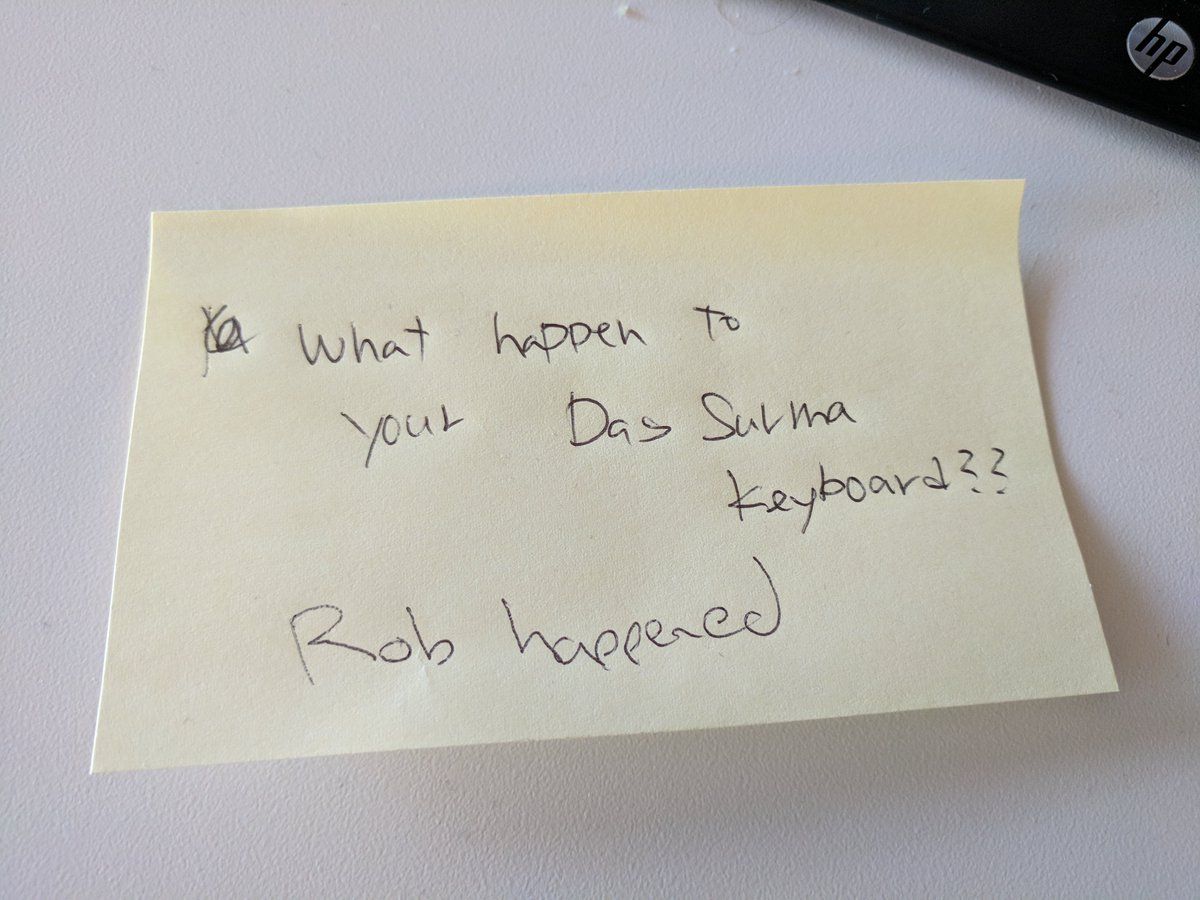 hp
What happen to
your Das Surma
keyboard??
Rob happened